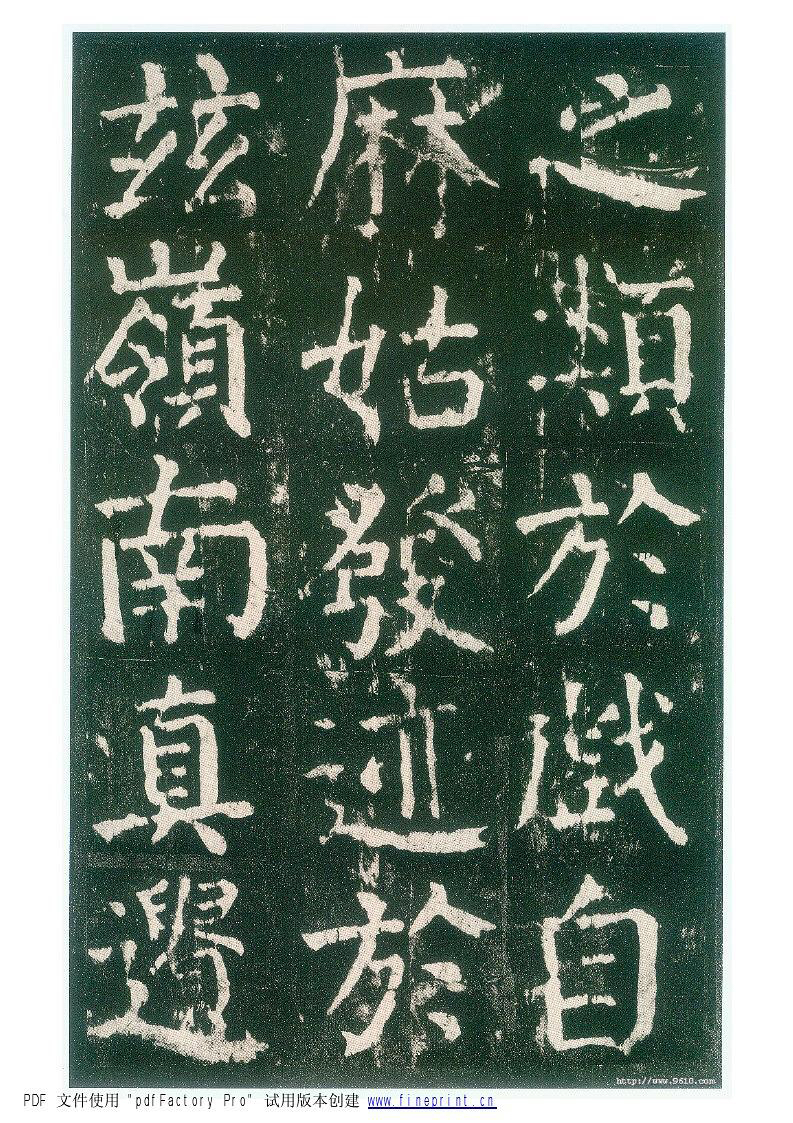 之類於戲自
麻姑發迹於
茲嶺南真遺
http://www.9610.com
PDF 文件使用 "pdfFactory Pro" 试用版本创建 www.fineprint.cn